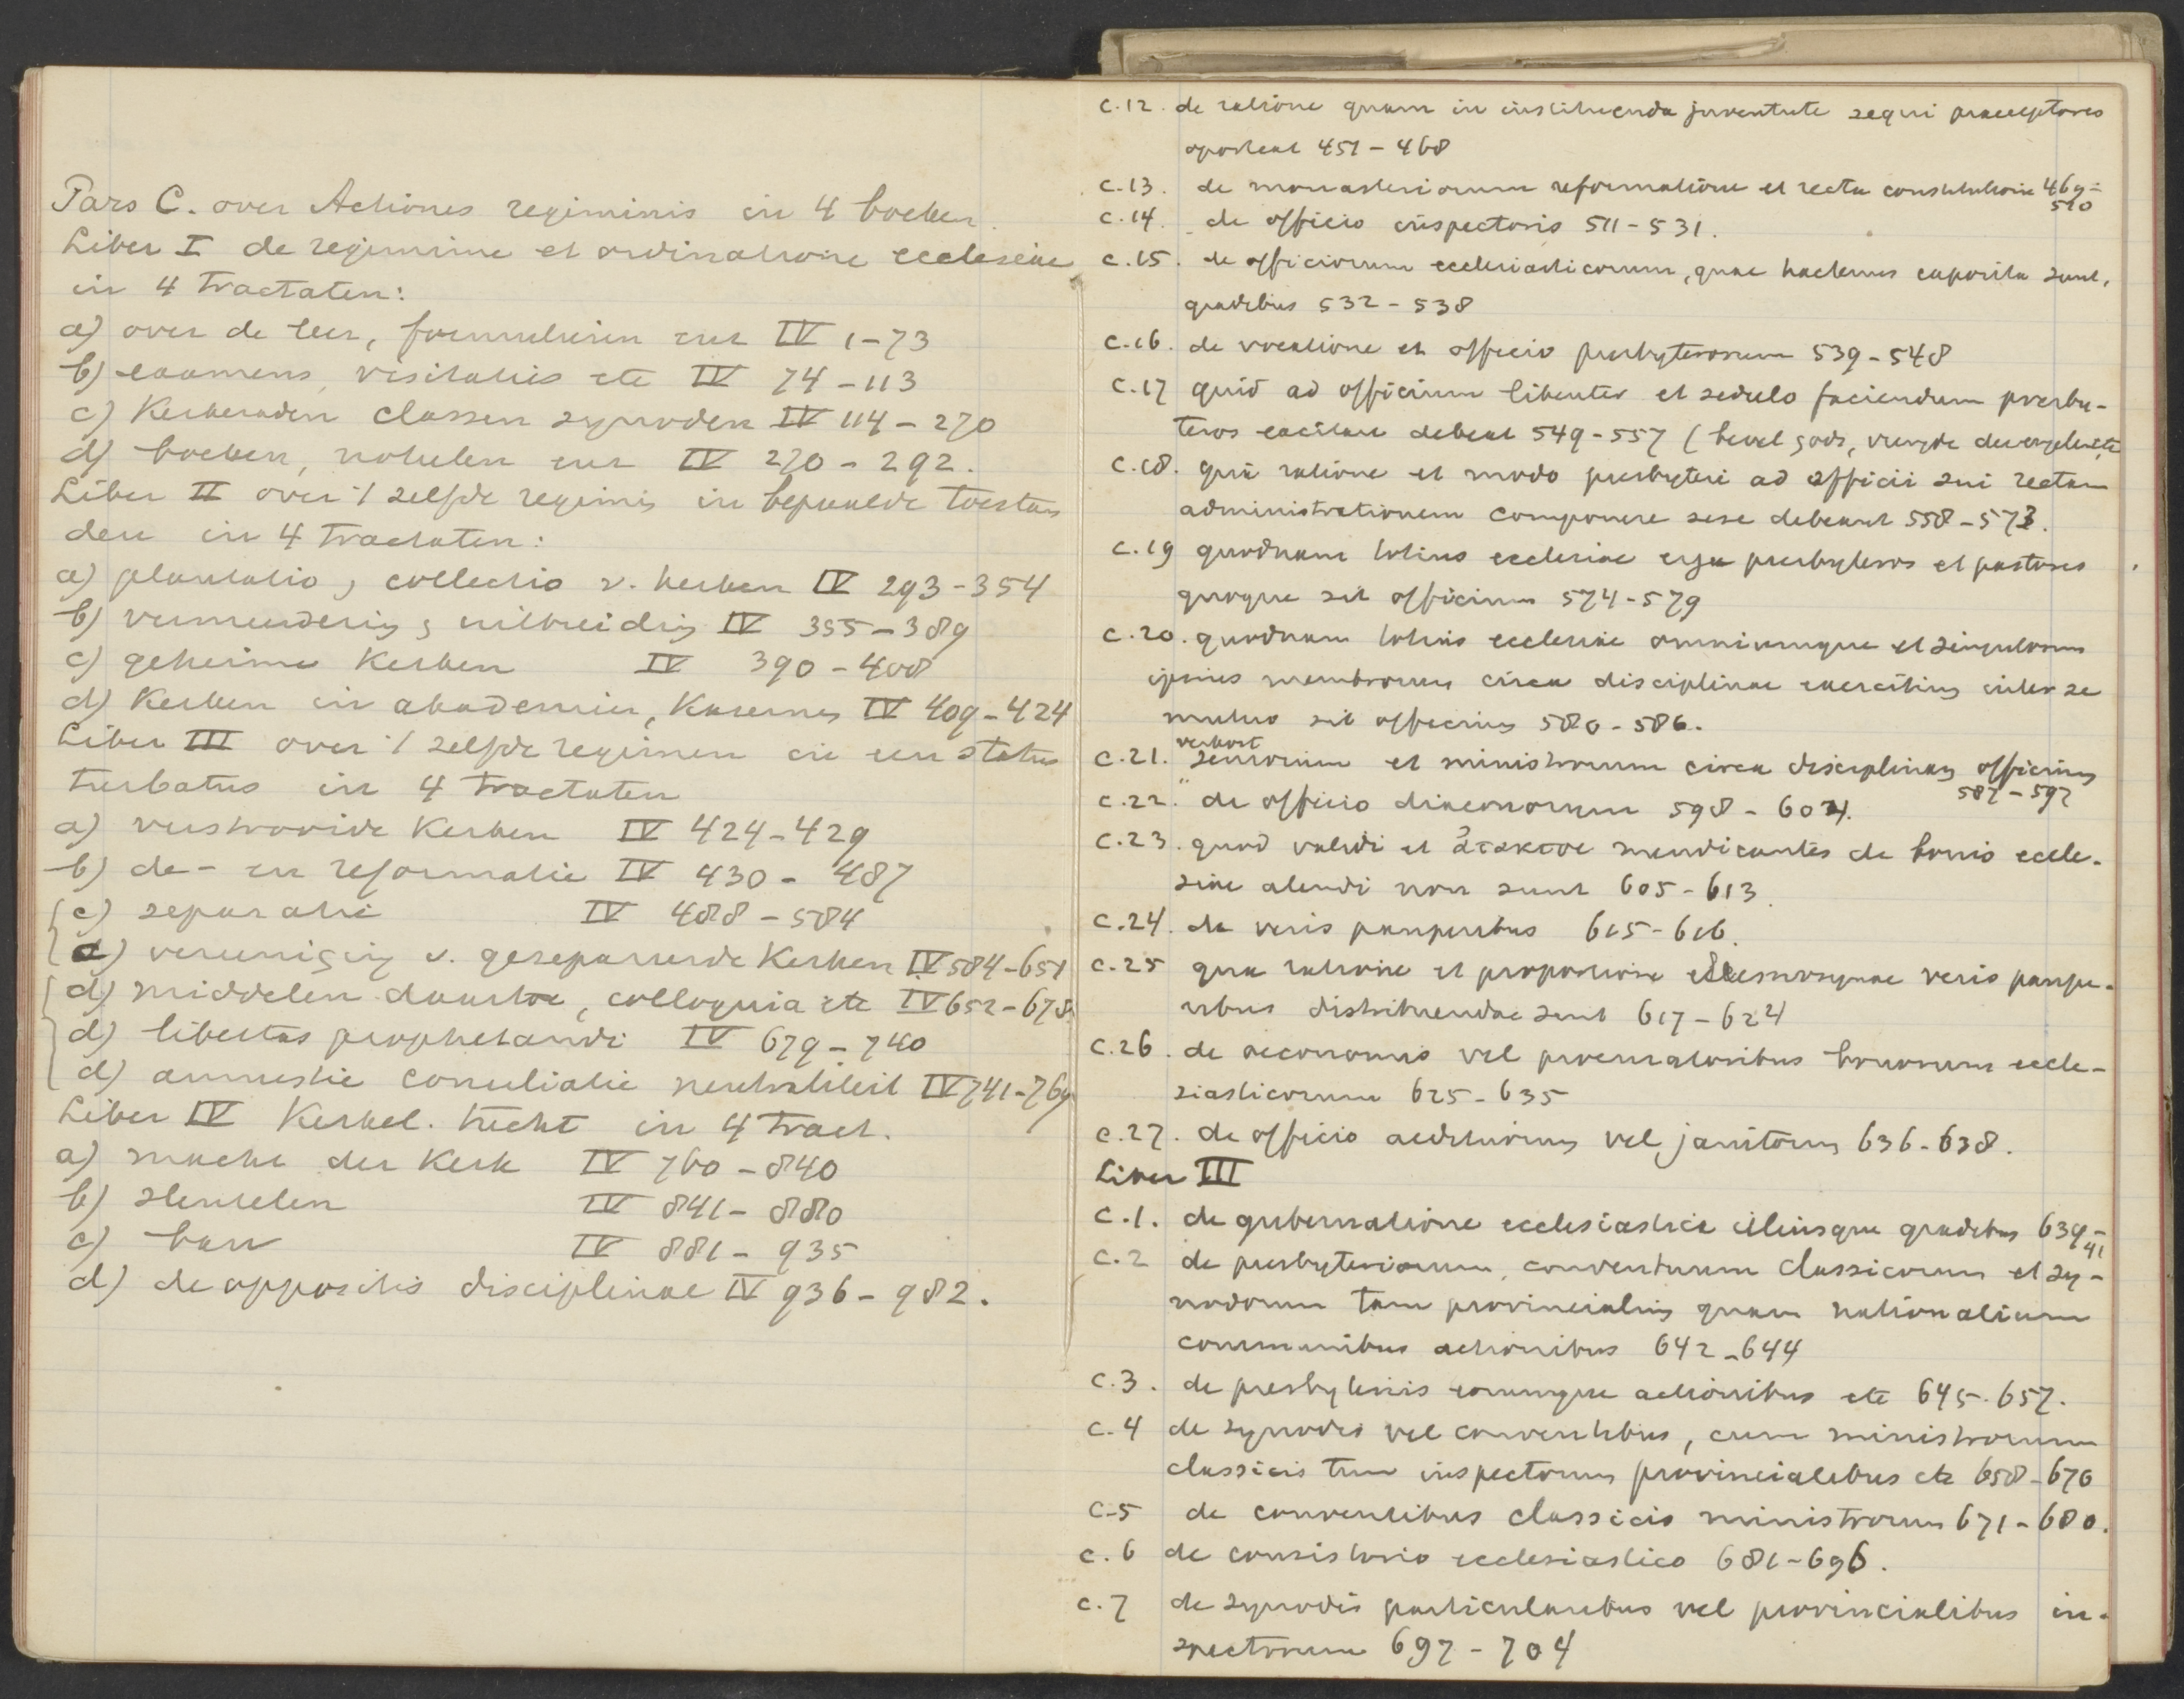 Pars C. over Actiones regiminis in 4 boeken.
Liber I de regimine et ordinatione ecclesiae
in 4 tractaten:
a) over de leer, formulieren enz IV 1-73
b) examens, visitatis etc IV 74-113
c) Kerkeraden classen synoden IV 114-270
d) boeken, notulen enz IV 270-292.
Liber II over 't zelfde regimen in bepaalde toestan
den in 4 tractaten:
a) plantatio, collectio v. kerken IV 293-354
b) vermeerdering, uitbreiding IV 355-389
c) geheime Kerken IV 390-408
d) Kerken in akademies, Kazernes IV 409-424
Liber III over 't zelfde regimen in een status
turbatus in 4 tractaten
a) verstrooide Kerken IV 424-429
b) de- en reformatie IV 430-487
c) separatie IV 488-584
c) vereeniging v. gesepareerde Kerken IV 584-651
d) middelen daartoe, colloquia etc IV 652-678
d) libertas prophetandi IV 679-740
d) amnestie conciliatie neutraliteit IV 741-769
Liber IV Kerkel. tucht in 4 tract.
a) macht der Kerk IV 760-840
b) sleutelen IV 841-880
c) ban IV 881-935
d) de oppositis disciplinae IV 936-982.
C.12. de ratione quam in instituenda juventute sequi praeceptores
oporteat 451-468
C.13. de monasteriorum reformatione et recta constitutione 469-
510
C.14. de officio inspectoris 511-531.
C.15. de officiorum ecclesiasticorum, quae hactenus exposita sunt,
gradibus 532-538
C.16. de vocatione et officio presbyterorum 539-548
C.17 quid ad officium libenter et sedulo faciendum presby-
teros excitare debeat 549-557 (bevel Gods,
C.18. qua ratione et modo presbyteri ad officii sui rectam
administrationem componere sese debeant 558-573.
C.19 quodnam totius ecclesiae erga presbyteros et pastores
quoque sit officium 574-579
C.20. quodnam totius ecclesiae omniumque et singulorum
ipsius membrorum circa disciplinae exercitium inter se
mutuo sit officium 580-586.
C.21. seniorum et ministrorum circa disciplinam officium
587-597
C.22. de officio diaconorum 598-604.
C.23. quod validi et ἄτακτοι mendicantes de bonis eccle-
siae alendi non sunt 605-613.
C.24. de veris pauperibus 615-616.
C.25 qua ratione et proportione eleemosynae veris paupe-
ribus distribuendae sunt 617-624
C.26. de oeconomis vel procuratoribus bonorum eccle-
siasticorum 625-635
C.27. de officio aedituorum vel janitorum 636-638.
Liber III
C.1. de gubernatione ecclesiastica illiusque gradibus 639-
41
C.2 de presbyteriorum, conventuum classicorum et sy-
nodorum tam provincialium quam nationalium
communibus actionibus 642-644
C.3. de presbyteriis eorumque actionibus etc 645-657.
C.4 de synodis vel conventibus, cum ministrorum
classicis tum inspectorum provincialibus etc 658-670
C.5 de conventibus classicis ministrorum 671-680.
C.6 de consistorio ecclesiastico 681-696.
C.7 de synodis particularibus vel provincialibus in-
spectorum 697-704